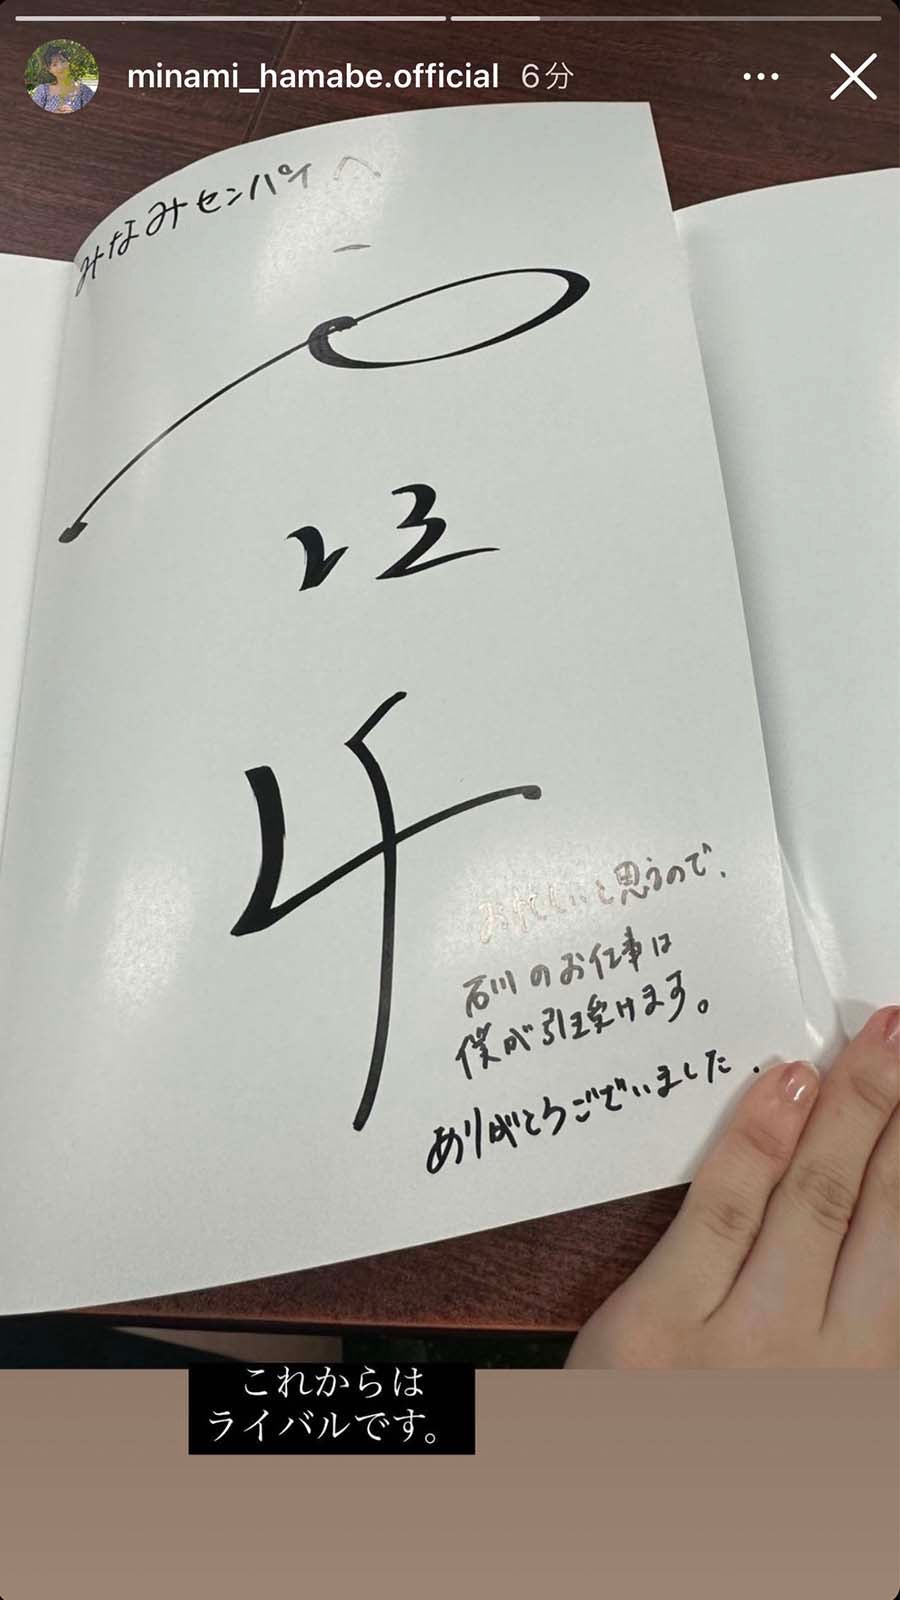 minami_hamabe.official 6分
みなみセンパイへ
と思うので、
石川のお仕事は
僕が引き受けます。
ありがとうございました.
これからは
ライバルです。